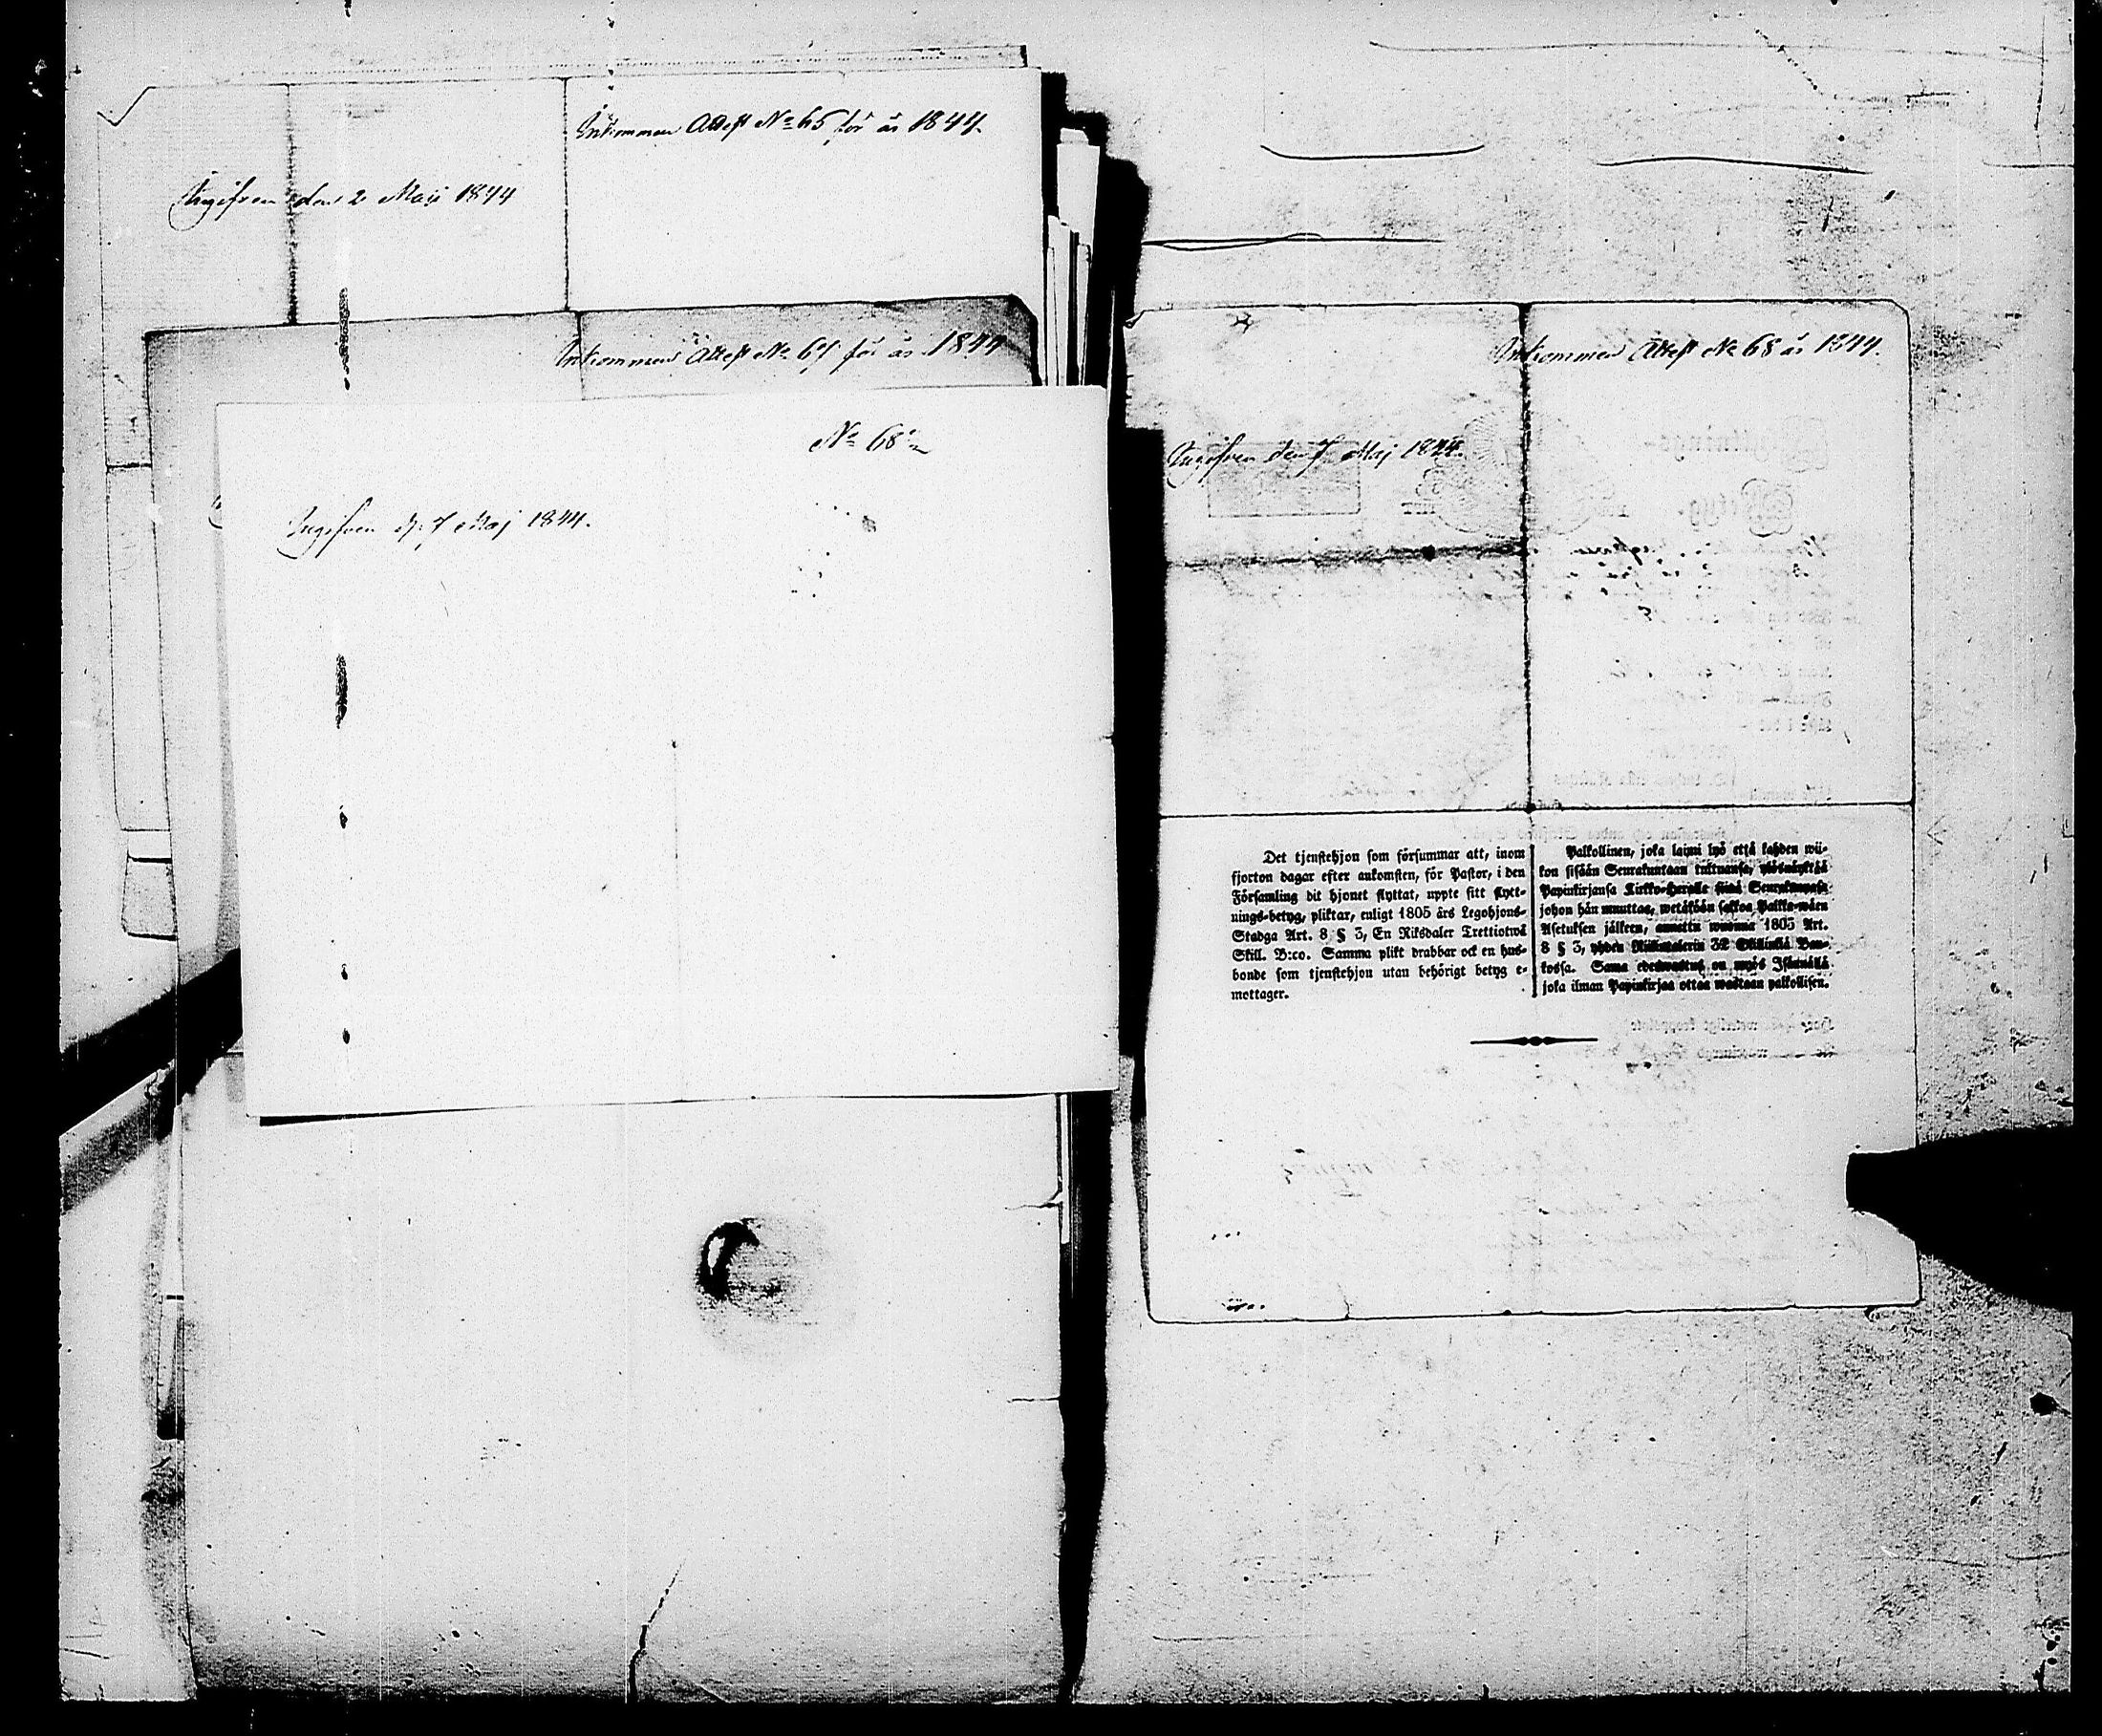 Inkommen Attest No 65 för år 1844.
Ingifven den 2 Maji 1844
Inkommen Attest No 67 för år 1844
No 68
Ingifven d. 7 Maj 1844.
Inkommen Attest No 68 år 1844.
Ingifven den 7 Maj 1844.
Det tjenstehjon som försummar att, inom
fjorton dagar efter ankomsten, för Pastor, i den
Församling dit hjonet flyttat, uppte sitt flytt-
nings-betyg, pliktar, enligt 1805 års Legohjons-
Stadga Art. 8 § 3, En Riksdaler Trettiotwå
Skill. B:co. Samma plikt drabbar ock en hus-
bonde som tjenstehjon utan behörigt betyg e-
mottager.
Palkollinen, joka laimi lyö ettå kahden wii-
kon sisåån Seurakuntaan tultuansa, ylösnåyttåå
Papinkirjansa Kirkko-Herralle siinå Seurakunnasa
johon hån muuttaa, wetåköön sakkoa Palkka-wåen
Asetuksen jålkeen, annettu wuonna 1805 Art.
8 § 3, yhden Riikintalerin 32 Skillinkiå Ban-
kossa. Sama edeswastus on myös Isånnållå
joka ilman Papinkirjaa ottaa wastaan palkollisen.